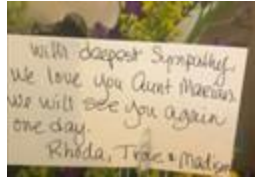 with deepest Sympathy.
We love you Aunt Marian.
We will see you again
one day.
Rhoda, Trae & Madison